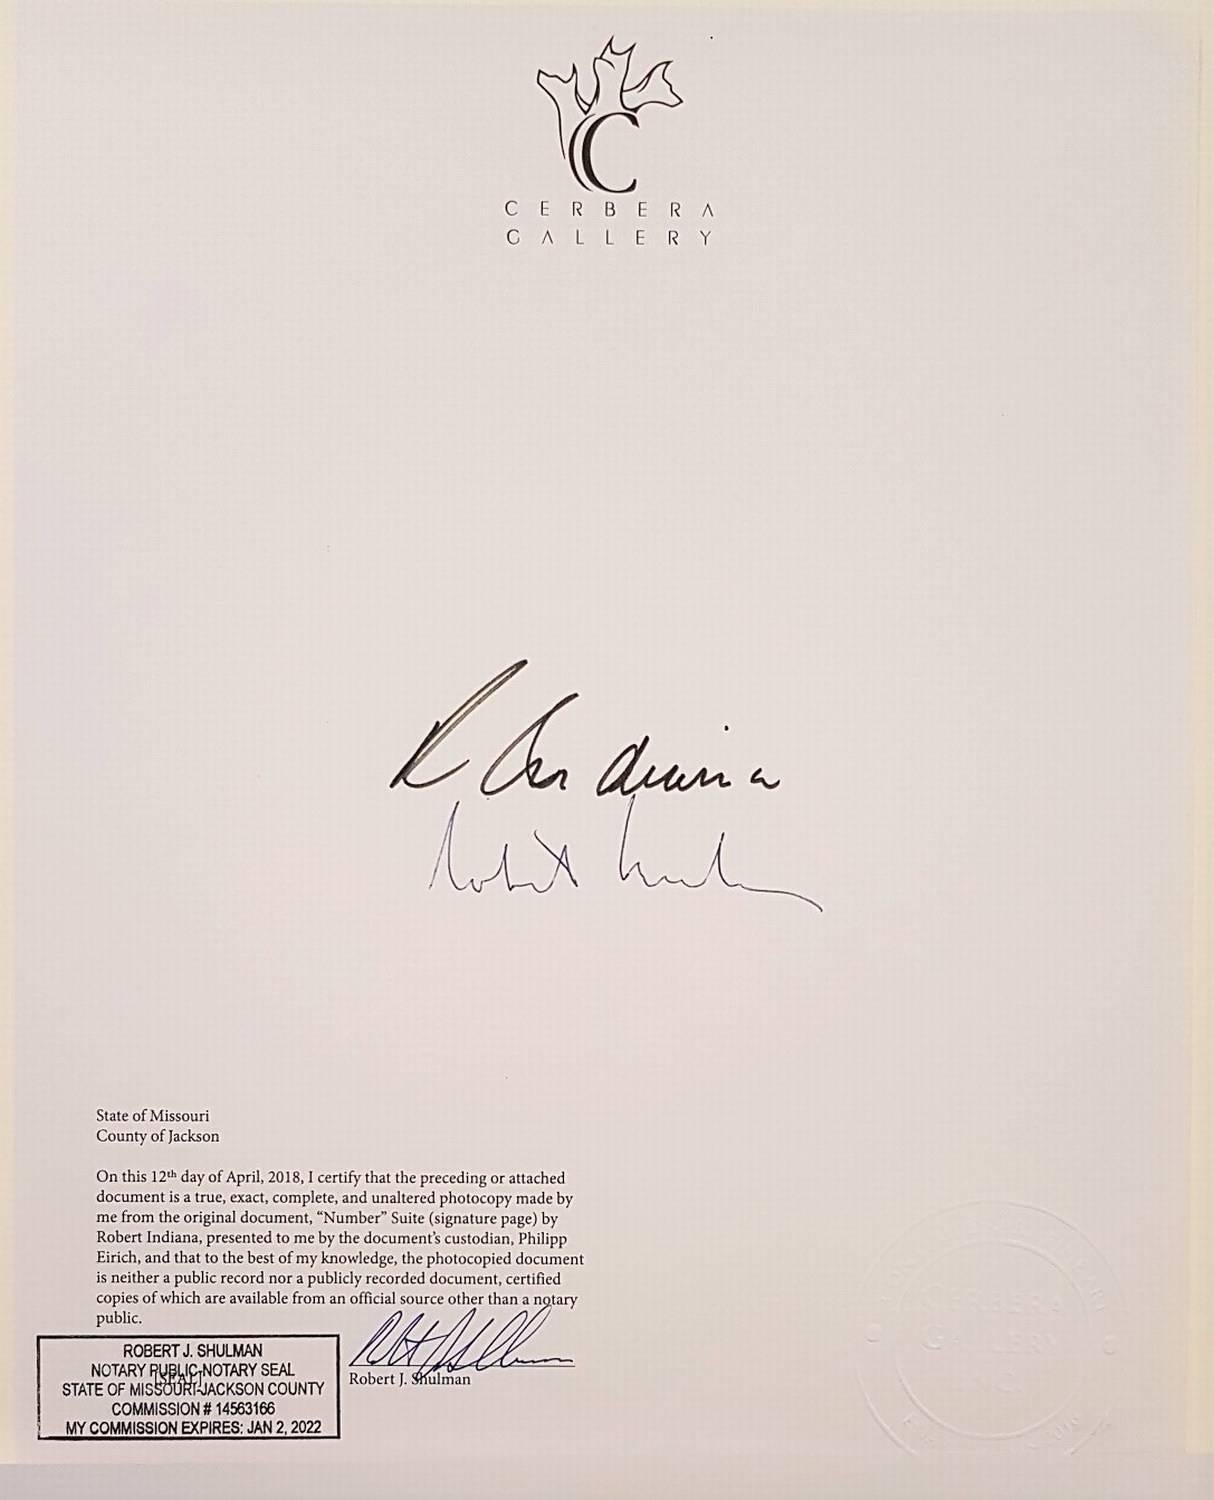 C
CERBERA
GALLERY
R Indiana
Robert
State of Missouri
County of Jackson
On this 12th day of April, 2018, I certify that the preceding or attached
document is a true, exact, complete, and unaltered photocopy made by
me from the original document, “Number” Suite (signature page) by
Robert Indiana, presented to me by the document’s custodian, Philipp
Eirich, and that to the best of my knowledge, the photocopied document
is neither a public record nor a publicly recorded document, certified
copies of which are available from an official source other than a notary
public.
ROBERT J. SHULMAN
NOTARY PUBLIC-NOTARY SEAL
[SEAL]
STATE OF MISSOURI-JACKSON COUNTY
COMMISSION # 14563166
MY COMMISSION EXPIRES: JAN 2, 2022
Robert J. Shulman
CERBERA
GALLERY